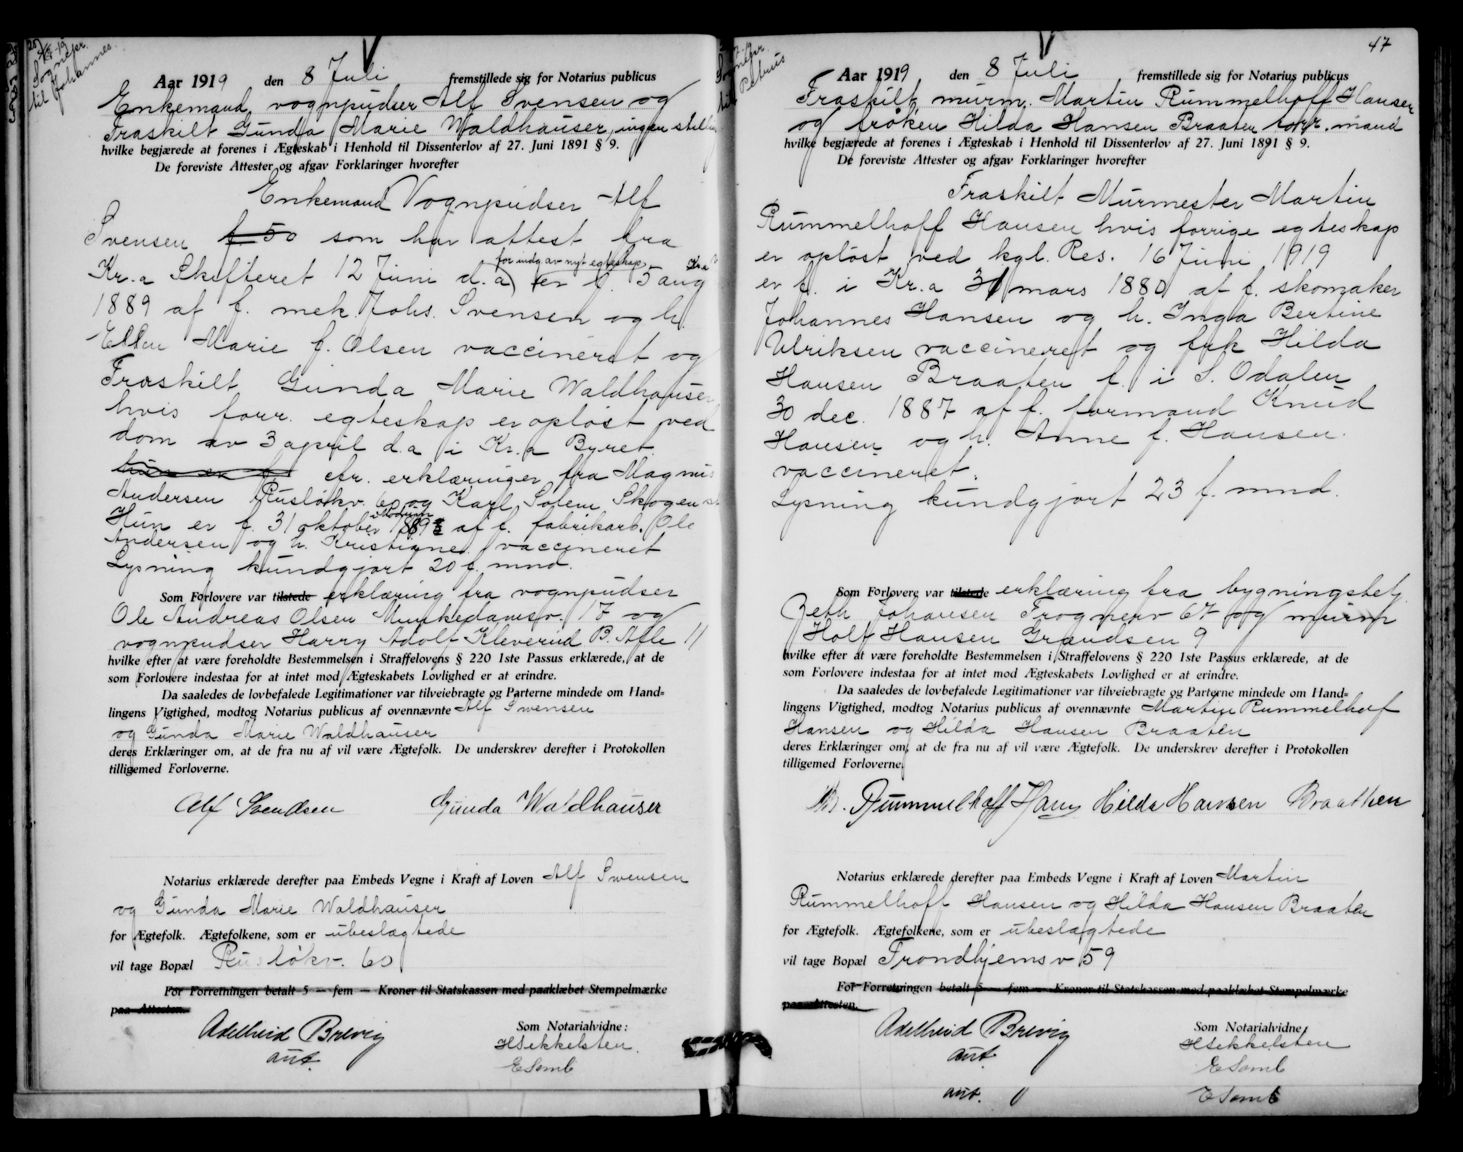 Sognepr.
til Johannes.
Aar 1919 den 8 Juli fremstillede sig for Notarius publicus
Enkemand, vognpudser Alf Svensen og
Fraskilt Gunda Marie Waldhauser, ingen
hvilke begjærede at forenes i Ægteskab i Henhold til Dissenterlov af 27. Juni 1891 § 9.
De foreviste Attester og afgav Forklaringer hvorefter
Enkemand Vognpudser Alf
Svensen f 50 som har attest fra
for indg av nyt egteskap
Kr.a Skifteret 12 Juni d.a) er f. 5 aug
1889 af f. mek Johs. Svensen og h.
Ellen Marie f. Olsen vaccineret og
Fraskilt Gunda Marie Waldhauser
hvis forr. egteskap er opløst ved
dom av 3 april d.a i Kr.a Byret.
hun er f. cfr. erklæringer fra Magnus
Andersen Rusløkv. 60 og Karl Solem Skogen
Hun er f. 31 oktober 1893 af f. fabrikarb. Ole
Andersen og h. Kristiane. vaccineret
Lysning kundgjort 20 f. mnd.
Som Forlovere var tilstede erklæring fra vognpudser
Ole Andreas Olsen Munkedamsv. 17 og
vognpudser Harry Adolf Kleverud B. Alle 11
hvilke efter at være foreholdte Bestemmelsen i Straffelovens § 220 1ste Passus erklærede, at de
som Forlovere indestaa for at intet mod Ægteskabets Lovlighed er at erindre.
Da saaledes de lovbefalede Legitimationer var tilveiebragte og Parterne mindede om Hand-
lingens Vigtighed, modtog Notarius publicus af ovennævnte Alf Svensen
og Gunda Marie Waldhauser
deres Erklæringer om, at de fra nu af vil være Ægtefolk. De underskrev derefter i Protokollen
tilligemed Forloverne.
Alf Svendsen Gunda Waldhauser
Notarius erklærede derefter paa Embeds Vegne i Kraft af Loven Alf Svensen
og Gunda Marie Waldhauser
for Ægtefolk. Ægtefolkene, som er ubeslægtede
vil tage Bopæl Rusløkv. 60
For Forretningen betalt 5 — fem — Kroner til Statskassen med paaklæbet Stempelmærke
paa Attesten.
Adelheid Brevig
aut.
Som Notarialvidne:
HSikkelsten.
ESomb
47
Aar 1919 den 8 Juli fremstillede sig for Notarius publicus
Fraskilt murm. Martin Rummelhoff Hansen
og frøken Hilda Hansen Braaten
hvilke begjærede at forenes i Ægteskab i Henhold til Dissenterlov af 27. Juni 1891 § 9.
De foreviste Attester og afgav Forklaringer hvorefter
Fraskilt Murmester Martin
Rummelhoff Hansen hvis forrige egteskap
er opløst ved kgl. Res. 16 Juni 1919
er f. i Kr.a 31 mars 1880 af f. skomaker
Johannes Hansen og h. Inga Bertine
Ulriksen vaccineret og frk Hilda
Hansen Braaten f. i S. Odalen
30 dec. 1887 af f. formand Knud
Hansen og h. Anne f. Hansen.
vaccineret.
Lysning kundgjort 23 f. mnd.
Som Forlovere var tilstede erklæring fra bygningsbetj.
Johansen Frognerv 67 og murm
Holf Hansen Grandsen 9
hvilke efter at være foreholdte Bestemmelsen i Straffelovens § 220 1ste Passus erklærede, at de
som Forlovere indestaa for at intet mod Ægteskabets Lovlighed er at erindre.
Da saaledes de lovbefalede Legitimationer var tilveiebragte og Parterne mindede om Hand-
lingens Vigtighed, modtog Notarius publicus af ovennævnte Martin Rummelhof
Hansen og Hilda Hansen Braaten
deres Erklæringer om, at de fra nu af vil være Ægtefolk. De underskrev derefter i Protokollen
tilligemed Forloverne.
M. Rummelhoff Hans Hilda Hansen Braathen
Notarius erklærede derefter paa Embeds Vegne i Kraft af Loven Martin
Rummelhoff Hansen og Hilda Hansen Braaten
for Ægtefolk. Ægtefolkene, som er ubeslægtede
vil tage Bopæl Trondhjemsv 59
For Forretningen betalt 5 — fem — Kroner til Statskassen med paaklæbet Stempelmærke
paa Attesten.
Adelheid Brevig
aut.
Som Notarialvidne:
HSikkelsten
ESomb
aut.
ESomb